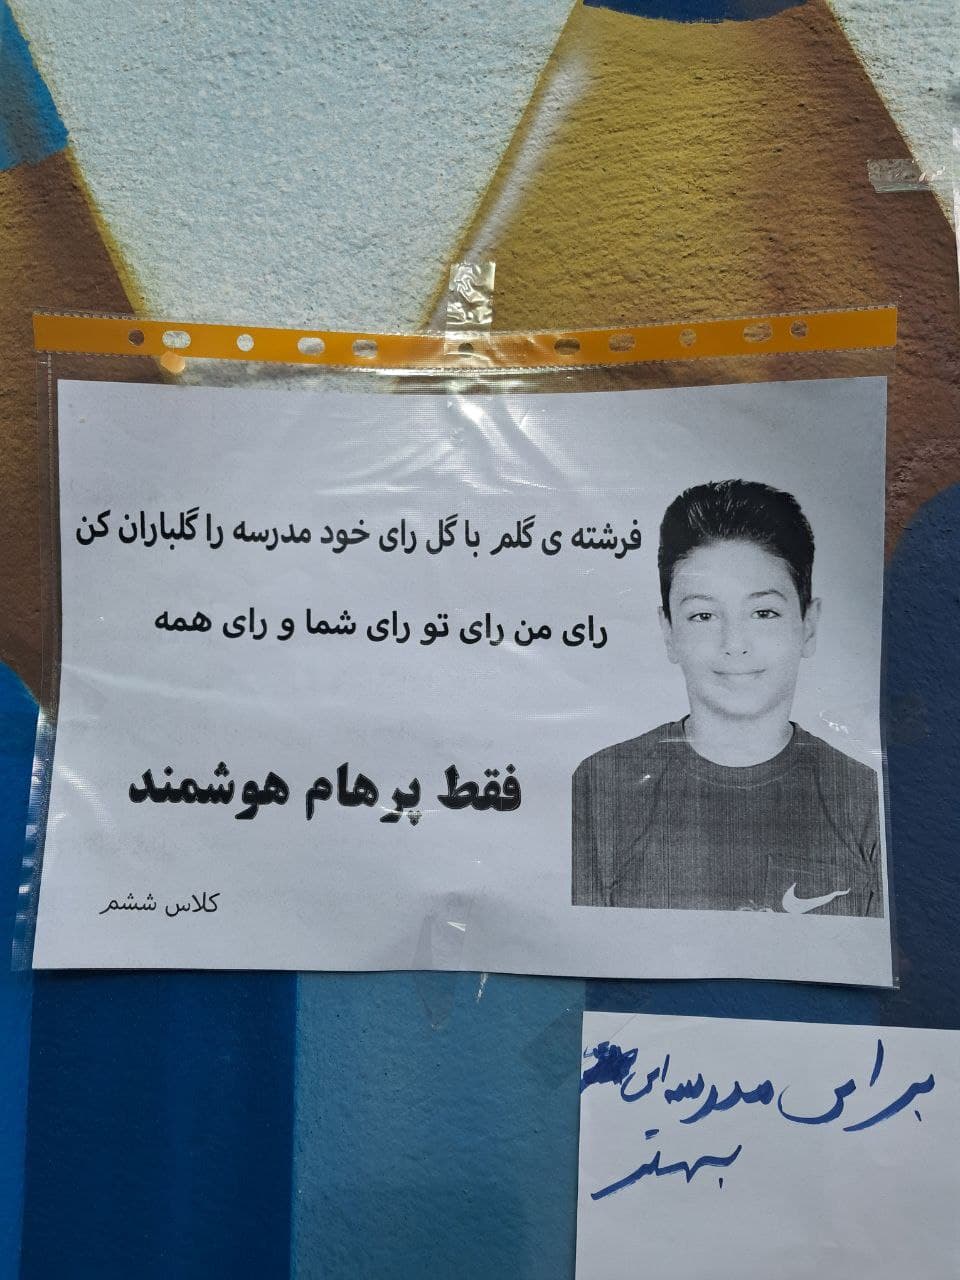 فرشته ی گلم با گل رای خود مدرسه را گلباران کن
رای من رای تو رای شما و رای همه
فقط پرهام هوشمند
کلاس ششم
برای مدرسه ای
بهتر